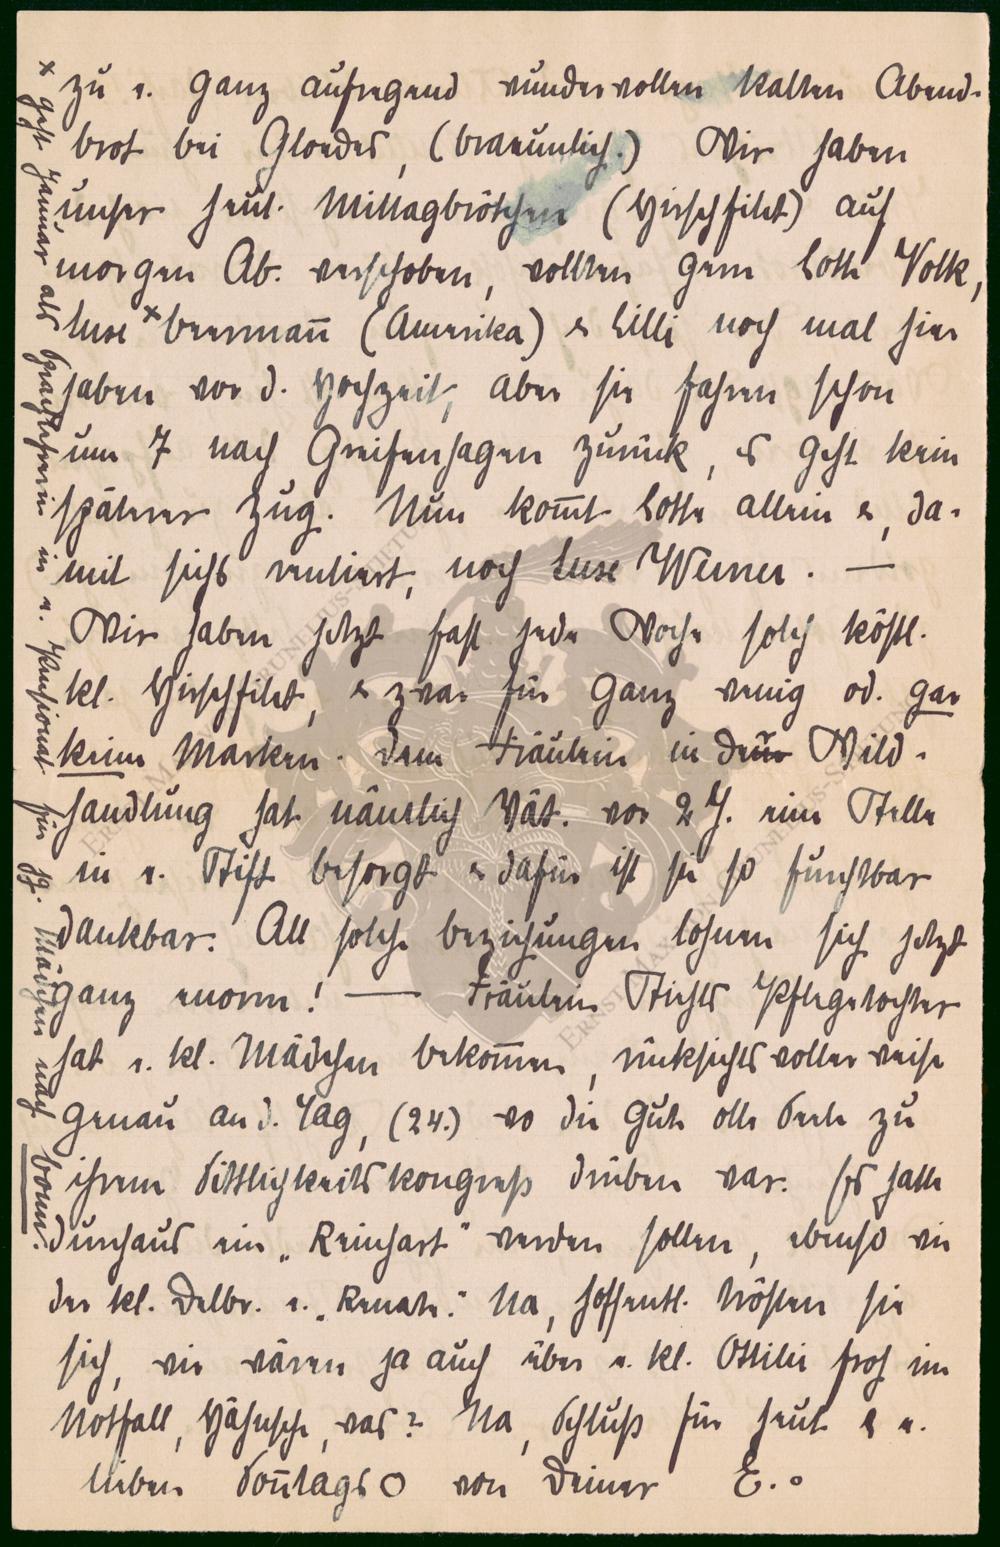 zu e. ganz aufregend wundervollen kalten Abend-
brot bei Gloedes, (bräunlich.) Wir haben
unser heut. Mittagbrötchen (Hirschfilet) auf
morgen Ab. verschoben, wollten gern Lotte Volk,
Luse x Beermann̅ (Amerika) & Lilli noch mal hier
haben vor d. Hochzeit, aber sie fahren schon
um 7 nach Greifenhagen zurück, es geht kein
späterer Zug. Nun kom̅t Lotte allein &, da-
mit sichs rentiert, noch Luse Werner. —
Wir haben jetzt fast jede Woche solch köstl.
kl. Hirschfilet, & zwar für ganz wenig od. gar
keine Marken. Dem Fräulein in der Wild-
handlung hat nämlich Vät. vor 2 J. eine Stelle
in e. Stift besorgt & dafür ist sie so furchtbar
dankbar. All solche Beziehungen lohnen sich jetzt
ganz enorm! — Fräulein Stichts Pflegetochter
hat e. kl. Mädchen bekom̅en, rücksichtsvoller weise
genau an d. Tag, (24.) wo die gute olle Seele zu
ihrem Sittlichkeitskongreß drüben war. Es hatte
durchaus ein „Reinhart" werden sollen, ebenso wie
der kl. Delbr. e. „Renate." Na, hoffentl. trösten sie
sich, wir wären ja auch über e. kl. Ottilie froh im
Notfall, Hähnsche, was? Na, Schluß für heut & e.
lieben Son̅tags O von Deiner E.
x geht Januar als Sprachlehrerin in e. Pensionat für jg. Mädchen nach Bonn.
ERNST MORITZ
GRUNELIUS-STIFTUNG